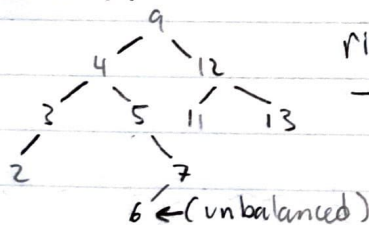 9
4 12
3 5 11 13
2 7
6 ←(unbalanced)